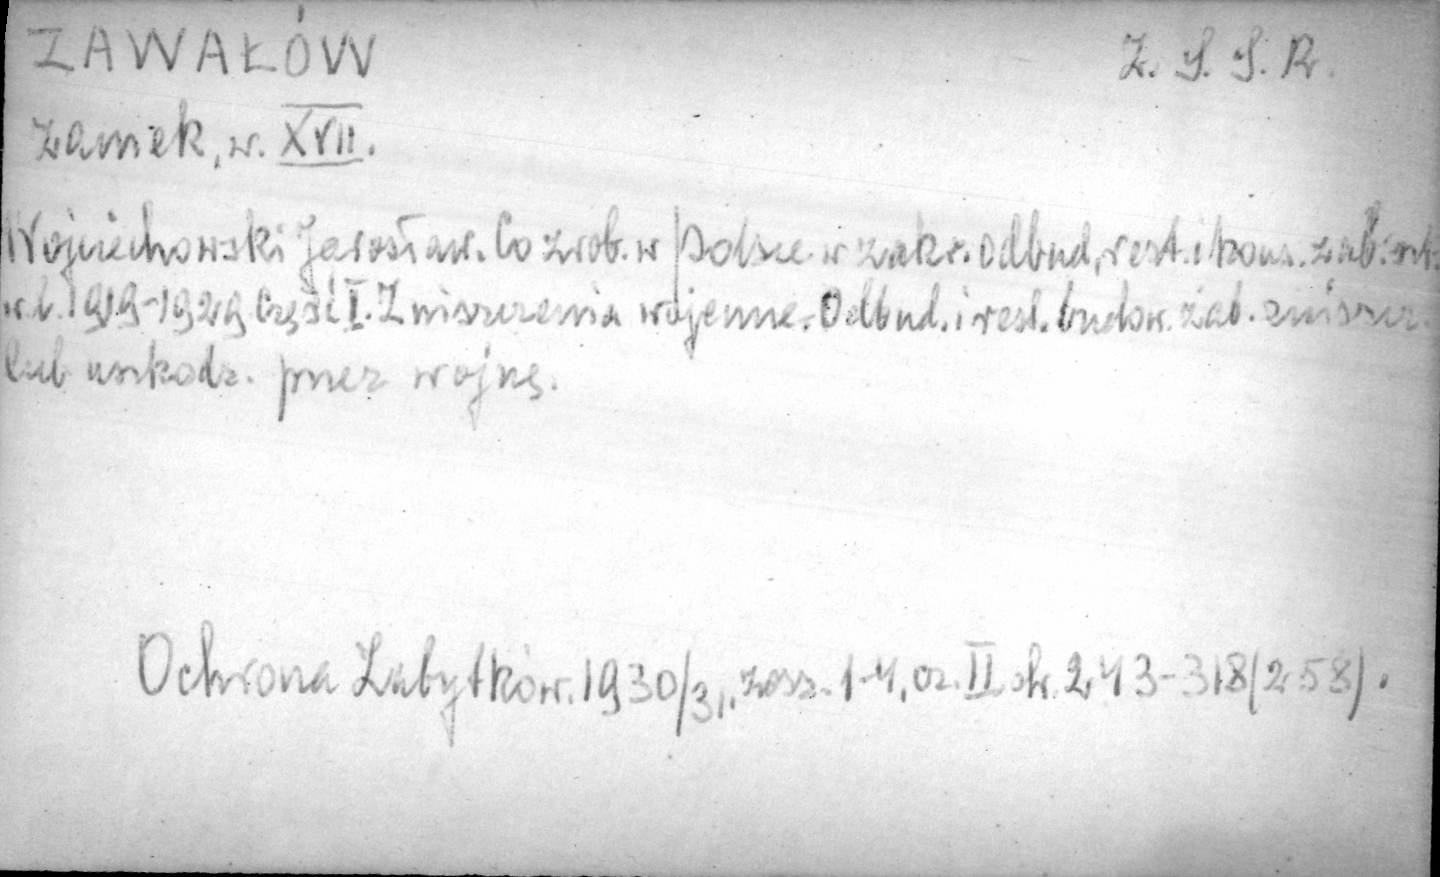 ZAWAŁÓW Z. S. S. R.
Zamek, w. XVII.
Wojciechowski Jarosław. Co zrob. w Polsce w zakr. odbud., rest. i kons. zab. szt.
w l. 1919-1929 Część I. Zniszczenia wojenne. Odbud. i rest. budow. zab. zniszcz.
lub uszkodz. przez wojnę.
Ochrona Zabytków. 1930/31, zesz. 1-4, cz. II str. 243-318(258).